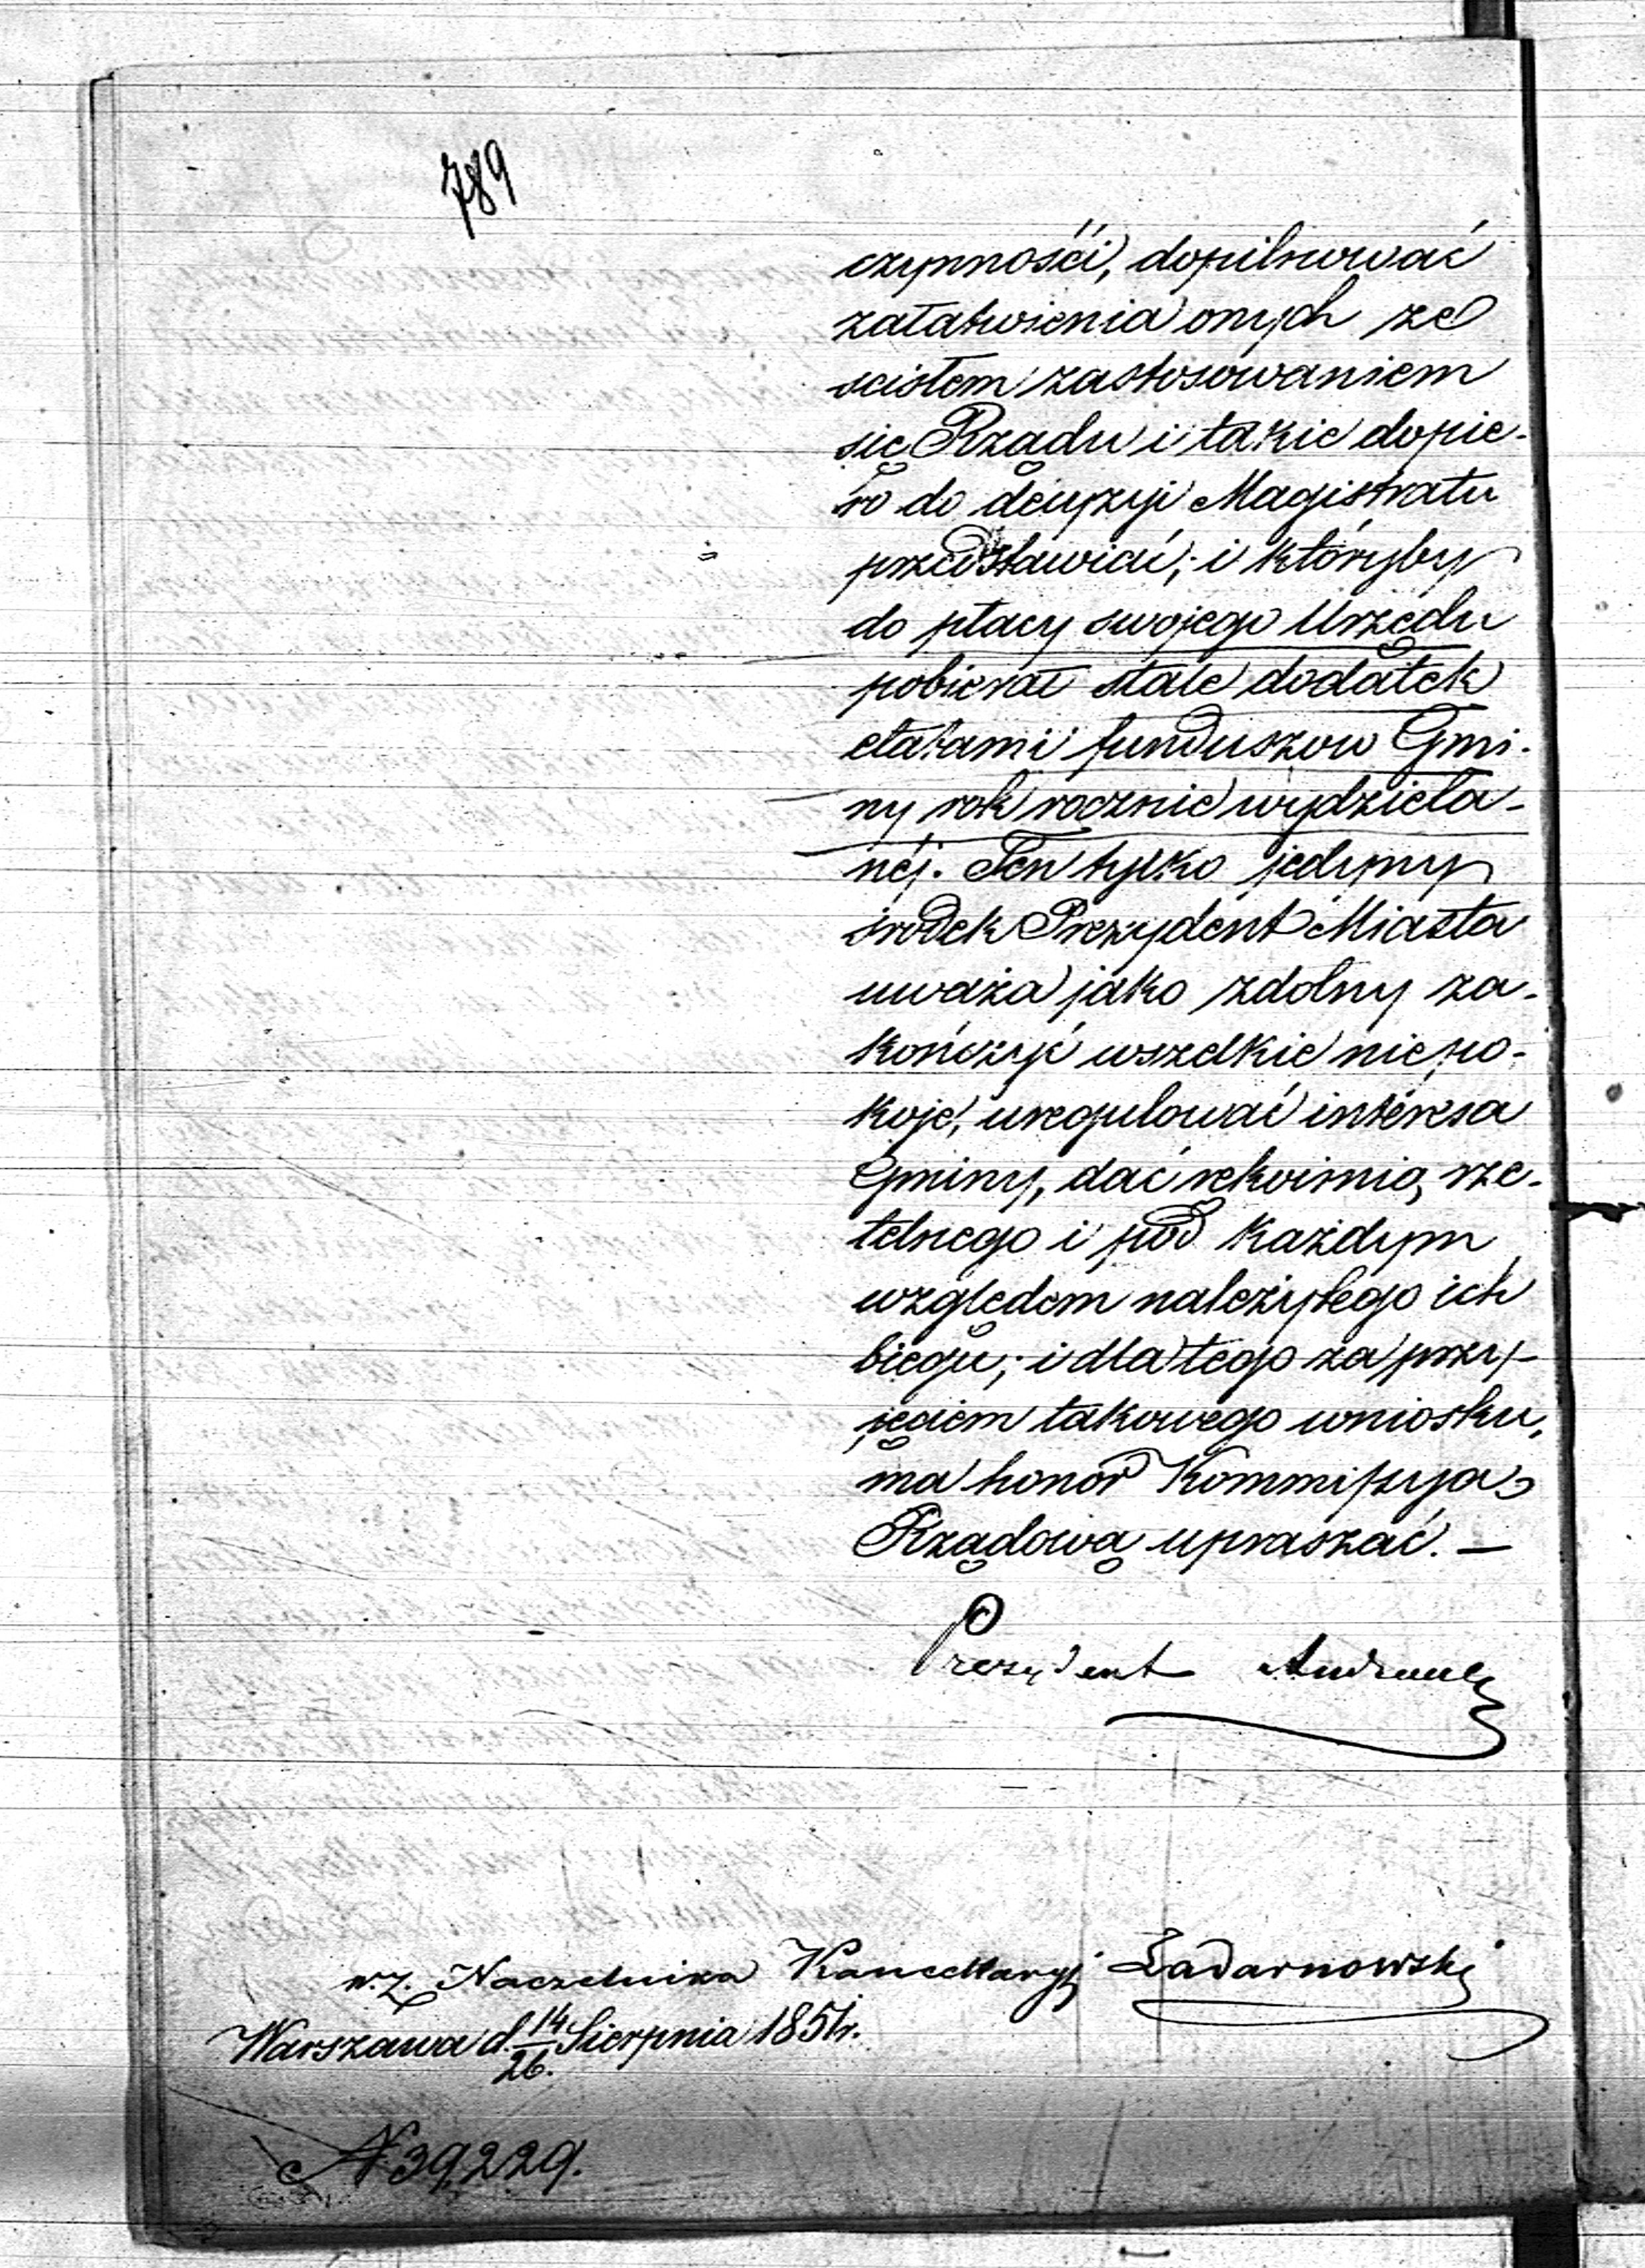 789
czynnośći, dopilnować
załatwienia onych ze
scisłem zastosowaniem
się Rządu i takie dopie-
ro do decyzyi Magistratu
przedstawiać; i któryby
do płacy swojego Urzędu
pobierał stale dodatek
etatami funduszow Gmi-
ny rok rocznie wydziela-
néj. Ten tylko jedyny
srodek Prezydent Miasta
uważa jako zdolny za-
kończyć wszelkie niepo-
koje, uregulować interesa
Gminy, dać rze-
telnego i pod każdym
względem należytego ich
biegu; i dla tego za przy-
jęciem takowego wniosku,
ma honor Kommissyą
Rządową upraszać. —
Prezydent
w.z. Naczelnika Kancellaryi Ładarnowski
Warszawa d. 14/26. Sierpnia 1851r.
N 39,229.